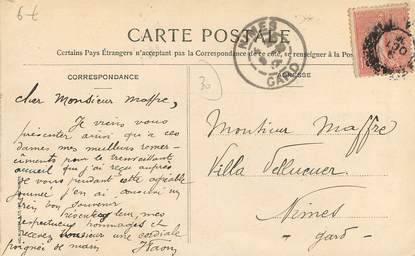 6 €
CARTE POSTALE
Certains Pays Étrangers n'acceptant pas la Correspondance de ce côté, se renseigner à la Poste
CORRESPONDANCE
ADRESSE
NIMES
GARD
30
Cher Monsieur Maffre,
Je viens vous
présenter ainsi qu'à ces
dames mes meilleurs remer-
ciments pour le bienveillant
accueil que j'ai reçu auprès
de vous pendant cette agréable
journée j'en ai conservé un
très bon souvenir
Présentez leur, mes
respectueux hommages et
recevez Monsieur une cordiale
poignée de main
Monsieur Maffre
Villa
Nimes
- Gard -